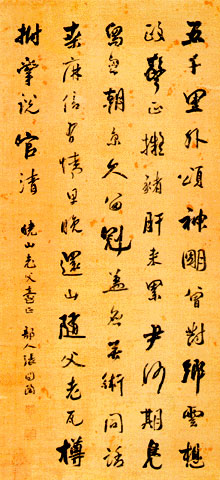 五千里外頌神明曾對鄉雲想
政聲正擬豬肝來累尹何期鳧
舄忽朝京久留冠蓋術同話
桑麻信有情早晚還山隨父老瓦樽
拊掌說官清
曉山老父臺正 部人張問陶